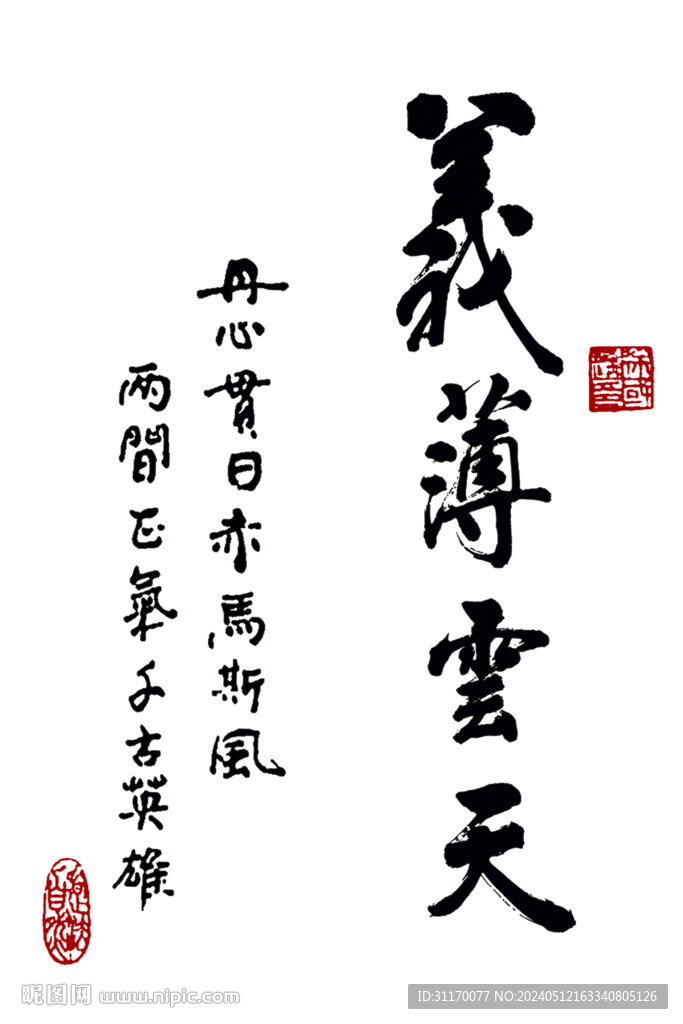 義薄雲天
丹心貫日赤馬斯風
兩間正氣千古英雄
昵图网 www.nipic.com
ID:31170077 NO:20240512163340805126